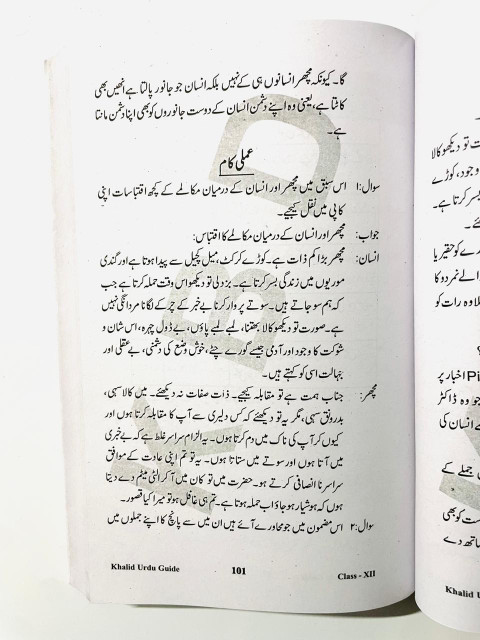 گا۔ کیونکہ مچھر انسانوں ہی کے نہیں بلکہ انسان جو جانور پالتا ہے انھیں بھی
کاٹتا ہے، یعنی وہ اپنے دشمن انسان کے دوست جانوروں کو بھی اپنا دشمن مانتا
ہے۔
عملی کام
سوال:۱ اس سبق میں مچھر اور انسان کے درمیان مکالمے کے کچھ اقتباسات اپنی
کاپی میں نقل کیجیے۔
جواب: مچھر اور انسان کے درمیان مکالمے کا اقتباس:
انسان: مچھر بڑا کم ذات ہے۔ کوڑے کرکٹ، میل کچیل سے پیدا ہوتا ہے اور گندی
موریوں میں زندگی بسر کرتا ہے۔ بزدلی تو دیکھو اس وقت حملہ کرتا ہے جب
کہ ہم سو جاتے ہیں۔ سوتے پر وار کرنا بے خبر کے چرکے لگانا مردانگی نہیں
ہے۔ صورت تو دیکھو کالا بھتنا، لمبے لمبے پاؤں، بے ڈول چہرہ، اس شان و
شوکت کا وجود اور آدمی جیسے گورے چٹے، خوش وضع کی دشمنی، بے عقلی اور
جہالت اسی کو کہتے ہیں۔
مچھر: جناب ہمت ہے تو مقابلہ کیجیے۔ ذات صفات نہ دیکھئے۔ میں کالا سہی،
بدرونق سہی، مگر یہ تو دیکھئے کہ کس دلیری سے آپ کا مقابلہ کرتا ہوں اور
کیوں کر آپ کی ناک میں دم کرتا ہوں۔ یہ الزام سراسر غلط ہے کہ بے خبری
میں آتا ہوں اور سوتے میں ستاتا ہوں۔ یہ تو تم اپنی عادت کے موافق
سراسر نا انصافی کرتے ہو۔ حضرت میں تو کان میں آکر الٹی میٹم دے دیتا
ہوں کہ ہوشیار ہو جاؤ اب حملہ ہوتا ہے۔ تم ہی غافل ہو تو میرا کیا قصور۔
سوال:۲ اس مضمون میں جو محاورے آئے ہیں ان میں سے پانچ کا اپنے جملوں میں
Khalid Urdu Guide 101 Class - XII
KBD
ت تو دیکھو کالا
وجود، کوڑے
بسر کرتا ہے۔
ئے۔
رے کو حقیر یا
الے نمرود کا
علاوہ رات کو
؟
Pi اخبار پر
جو وہ ڈاکٹر
ے انسان کی
جملے کے
ست کو بھی
ساتھ دے
Khalid U